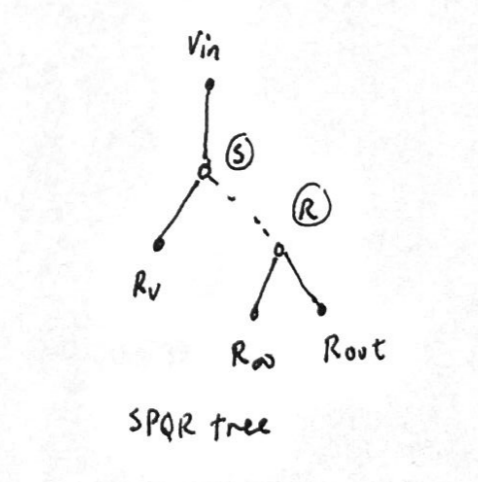 Vin
S
R
Rv
R∞ Rout
SPQR tree